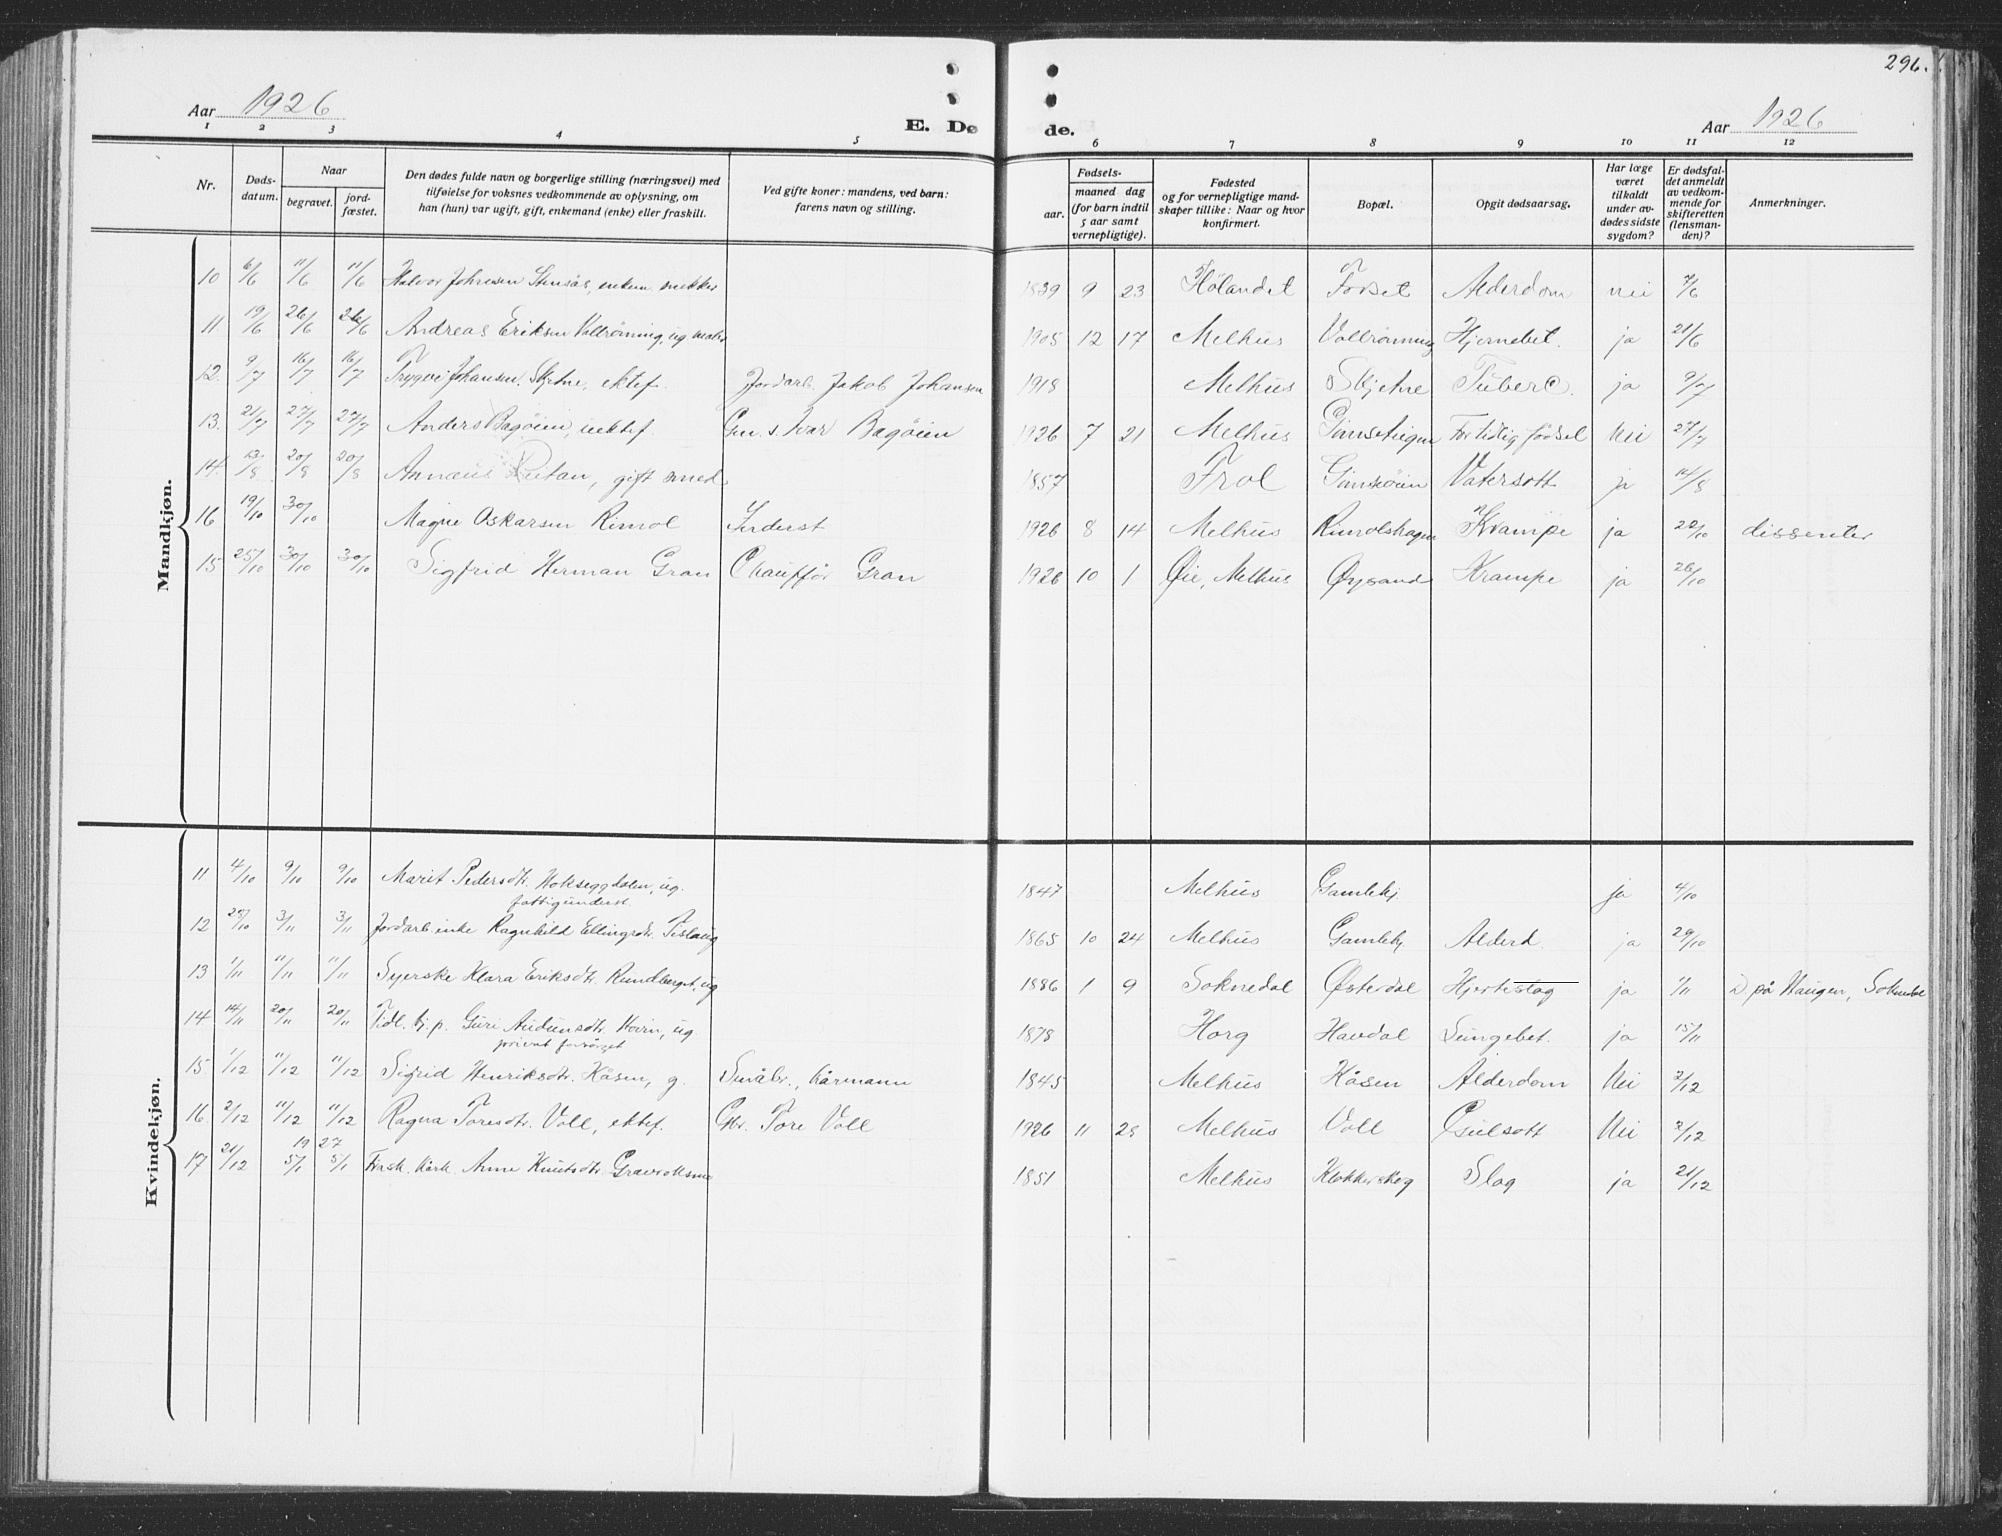 296.
Aar 1926
E. Dø
de.
Aar 1926
1 2 3 4 5 6 7 8 9 10 11 12
Nr.
Døds-
datum.
Naar
begravet.
jord-
fæstet.
Den dødes fulde navn og borgerlige stilling (næringsvei) med
tilføielse for voksnes vedkommende av oplysning, om
han (hun) var ugift, gift, enkemand (enke) eller fraskilt.
Ved gifte koner: mandens, ved barn:
farens navn og stilling.
Fødsels-
aar.
maaned dag
(for barn indtil
5 aar samt
vernepligtige).
Fødested
og for vernepligtige mand-
skaper tillike: Naar og hvor
konfirmert.
Bopæl.
Opgit dødsaarsag.
Har læge
været
tilkaldt
under av-
dødes sidste
sygdom?
Er dødsfal-
det anmeldt
av vedkom-
mende for
skifteretten
(lensman-
den)?
Anmerkninger.
Mandkjøn.
10 6/6 11/6 11/6 Halvor Johnsen Stensås, enkem. snekker 1839 9 23 Hølandet Forset Alderdom nei 7/6
11 19/6 26/6 26/6 Andreas Eriksen Vollrønning, ug 1905 12 17 Melhus Vollrønning Hjernebet. ja 21/6
12. 9/7 16/7 16/7 Trygve Johansen Skjetne, ektef. Jordarb. Jakob Johansen 1918 Melhus Skjetne Tuberc. ja 9/7
13. 21/7 27/7 27/7 Anders Bagøien, uektef. Gm. s. Ivar Bagøien 1926 7 21 Melhus Gimsetrøen For tidlig fødsel Nei 27/7
14. 13/8 20/8 20/8 Annæus Reitan, gift smed 1857 Frol Gimsøien Vatersott ja 14/8
16 19/10 30/10 Magne Oskarsen Rimol 1926 8 14 Melhus Rimolshagen Krampe ja 20/10 dissenter
15 25/10 30/10 30/10 Sigfrid Herman Gran Chauffør Gran 1926 10 1 Øie, Melhus Øysand Krampe ja 26/10
Kvindekjøn.
11 4/10 9/10 9/10 Marit Pedersdtr. Hokseggdalen, ug.
fattigunderst. 1847 Melhus Gamlehj. ja 4/10
12 28/10 3/11 3/11 Jordarb. enke Ragnhild Ellingsdtr. Tislaug 1865 10 24 Melhus Gamlehj. Alderd. ja 29/10
13 1/11 11/11 11/11 Syerske Klara Eriksdtr. Rundberget, ug 1886 1 9 Soknedal Østerdal Hjerteslag ja 1/11 D. på Haugen, Soknedal
14 14/11 20/11 20/11 Tidl. tj. p. Guri Audunsdtr. Hovin, ug
privat forsørget 1878 Horg Havdal Lungebet. ja 15/11
15 1/12 11/12 11/12 Sigrid Henriksdtr. Kåsen, g. Småbr., 1845 Melhus Kåsen Alderdom Nei 2/12
16 2/12 11/12 11/12 Ragna Toresdtr. Voll, ektef. Gbr. Tore Voll 1926 11 25 Melhus Voll Nei 3/12
19 27
17 21/12 5/1 5/1 Anne Knutsdtr. Gravråksmo 1851 Melhus Klokkerskog Slag ja 21/12